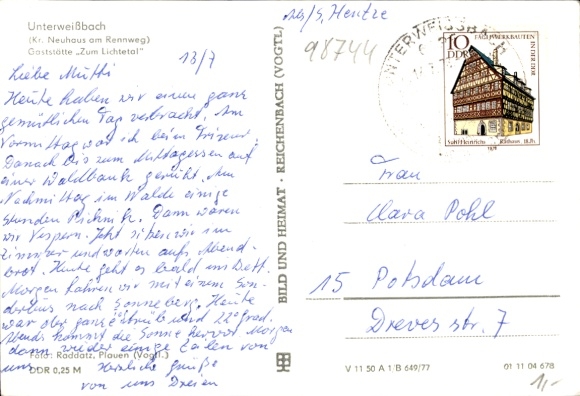 Unterweißbach
(Kr. Neuhaus am Rennweg)
Gaststätte „Zum Lichtetal“
13/7
Liebe Mutti
Heute haben wir einen ganz
gemütlichen Tag verbracht. Am
Vormittag war ich beim Friseur.
Danach bis zum Mittagessen auf
einer Waldbank geruht. Am
Nachmittag im Walde einige
Stunden Picknick. Dann waren
wir Vespern. Jetzt sitzen wir im
Zimmer und warten aufs Abend-
brot. Heute geht es bald ins Bett.
Morgen fahren wir mit einem Son-
derbus nach Sonneberg. Heute
war es ganz trüb und 22 grad.
Abends kommt die Sonne hervor. Morgen
dann wieder einige Zeilen von
uns. Herzliche Grüße
von uns Dreien
Foto: Raddatz, Plauen (Vogtl.)
DDR 0,25 M
BILD UND HEIMAT · REICHENBACH (VOGTL)
Hentze
98744
UNTERWEISSBACH
10
DDR
FACHWERKBAUTEN
IN DER DDR
1978
Frau
Clara Pohl
15 Potsdam
Dreves str. 7
V 11 50 A 1/B 649/77
01 11 04 678
1,-